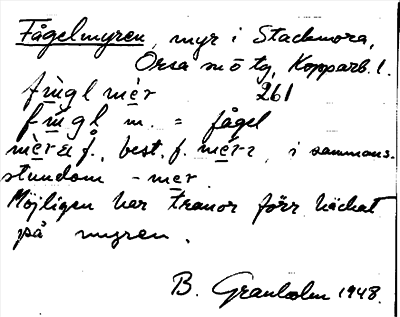 Fågelmyren, myr i Stackmora,
Orsa sn ö tg, Kopparb. l.
fùgl mèr 261
fùgl m. = fågel
mèra f., best. f. mérr, i sammans.
stundom -mer.
Möjligen har tranor förr häckat
på myren.
B. Granholm 1948.